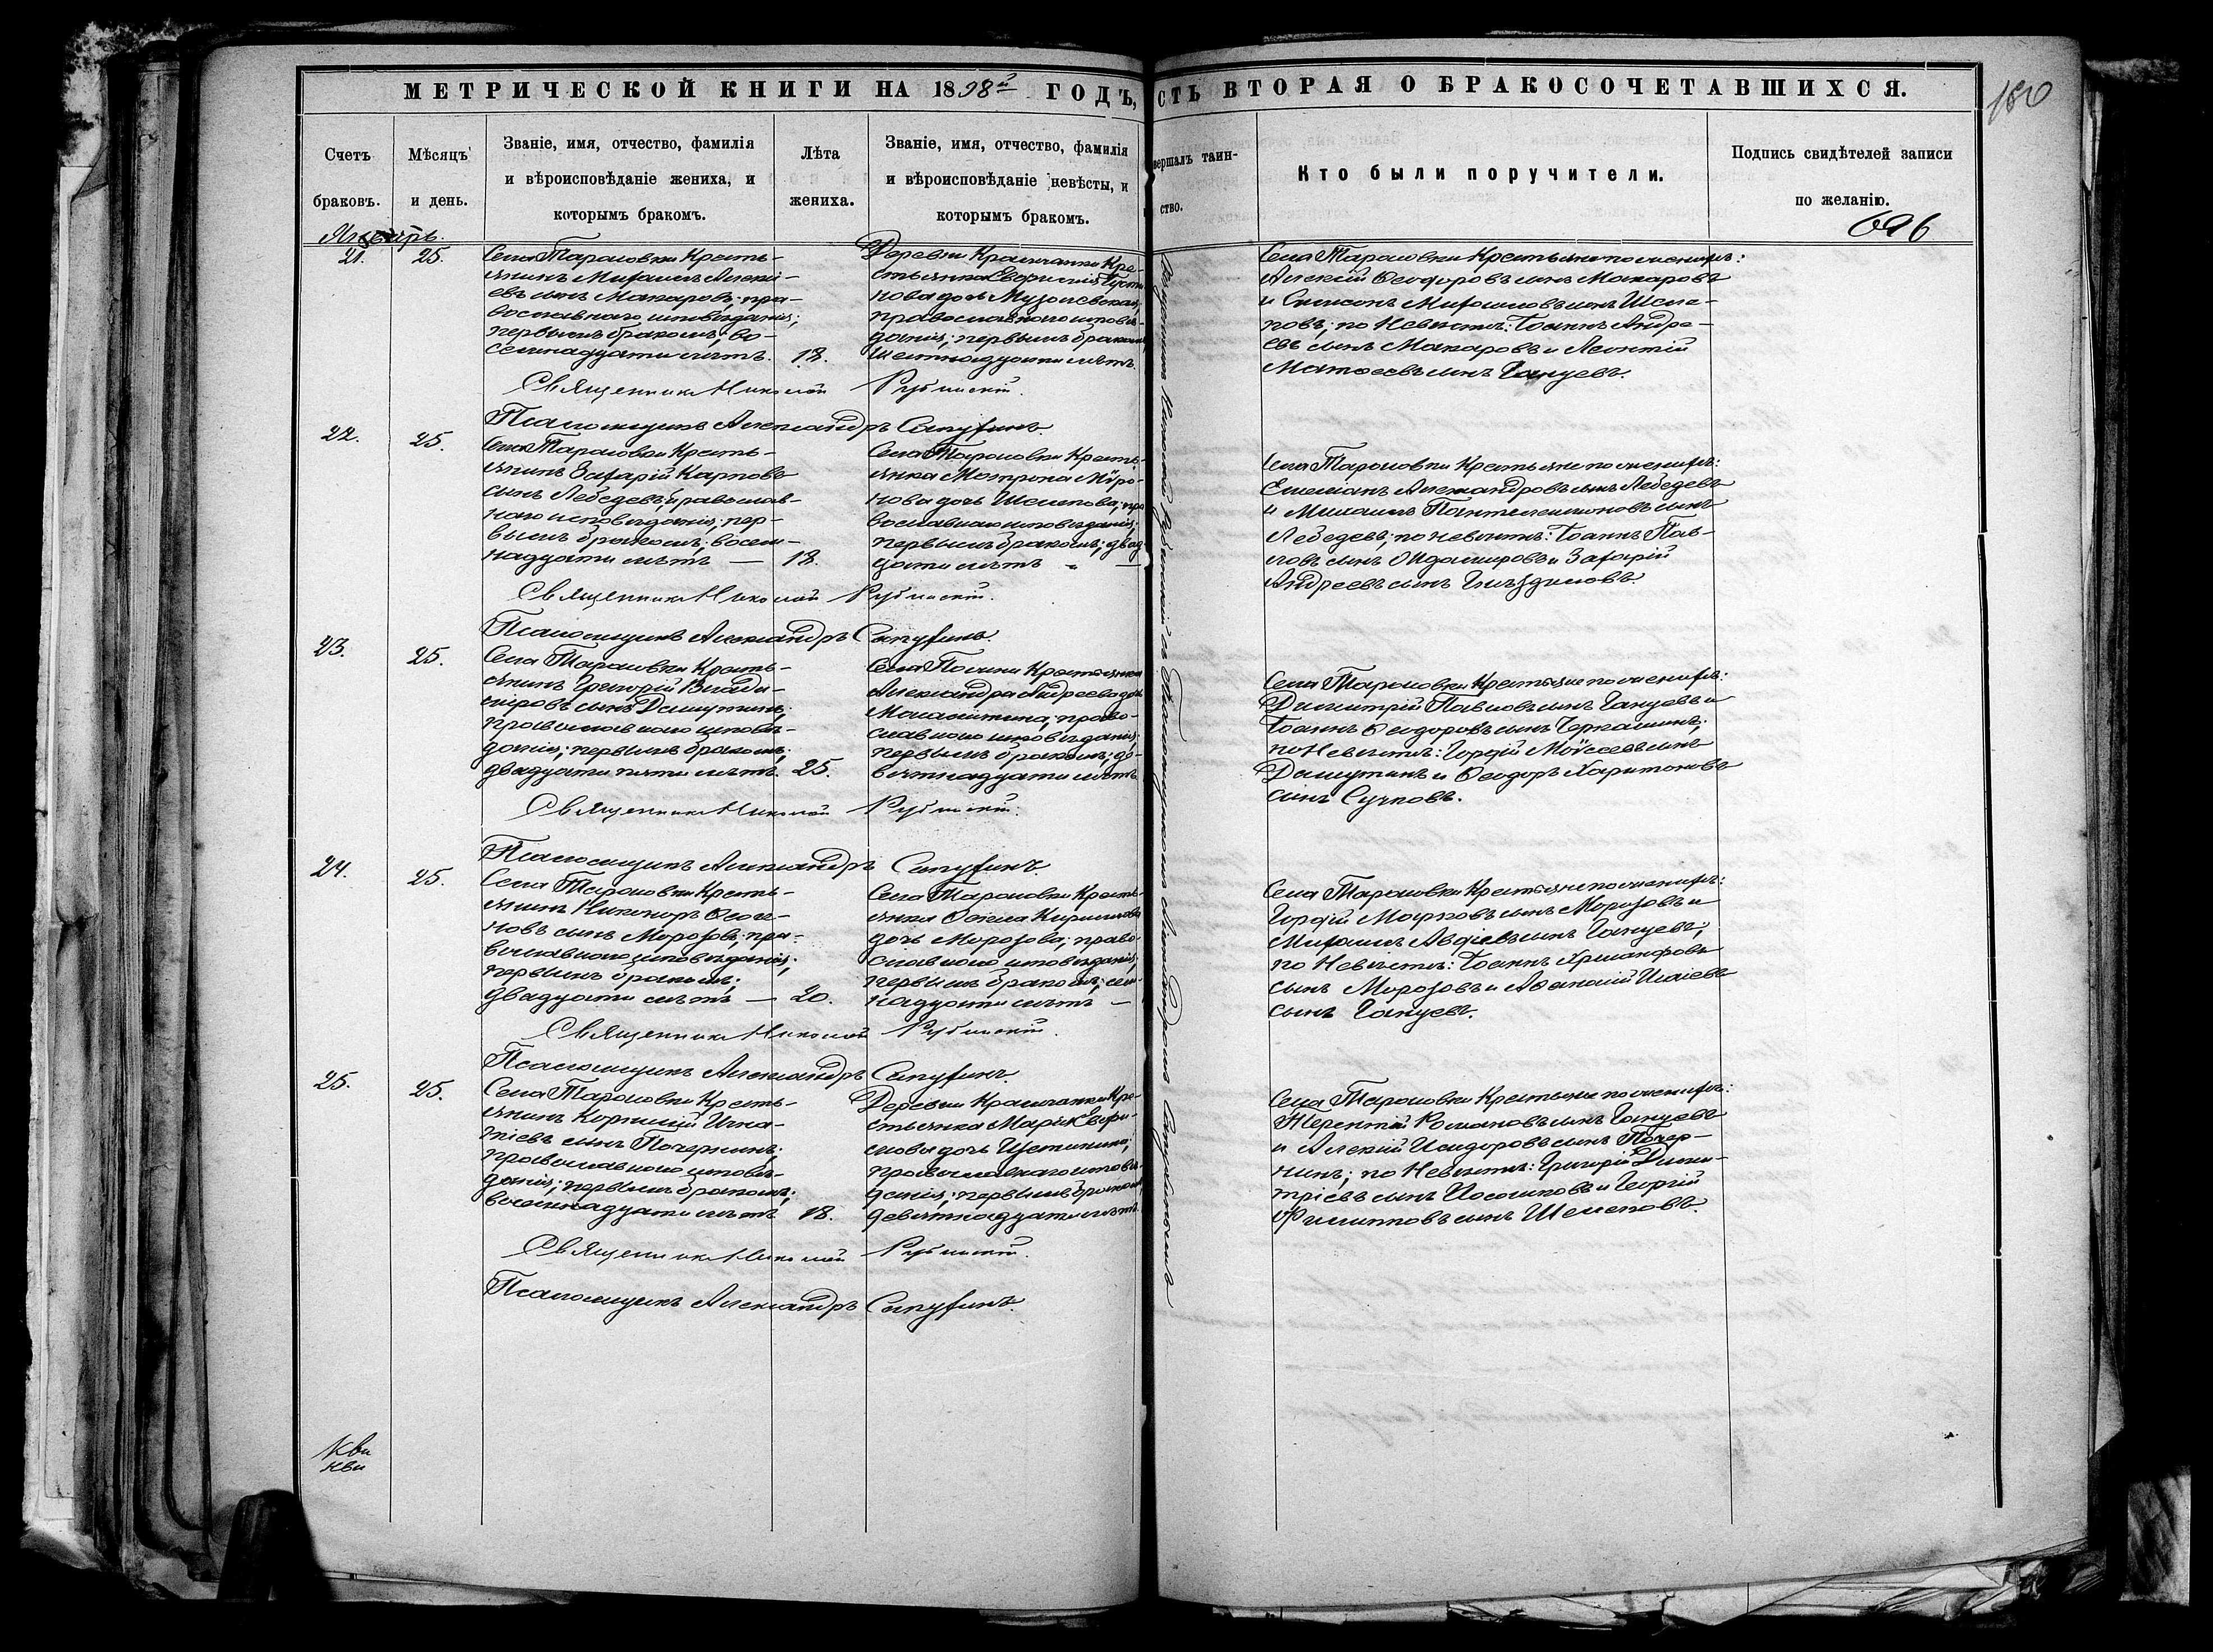 МЕТРИЧЕСКОЙ КНИГИ НА 1898й ГОДЪ,
СТЬ ВТОРАЯ О БРАКОСОЧЕТАВШИХСЯ.
180
Счетъ браковъ.
Мѣсяцъ и день.
Званіе, имя, отчество, фамилія
и вѣроисповѣданіе жениха, и
которымъ бракомъ.
Лѣта
жениха.
Званіе, имя, отчество, фамилія
и вѣроисповѣданіе невѣсты, и
которымъ бракомъ.
вершалъ таин-
ство.
Кто были поручители.
Подпись свидѣтелей записи
по желанію.
696
Январь.
21.
25.
Села Тарасовки Кресть-
янинъ Михаилъ Алексѣ-
евъ сынъ Макаровъ; пра-
вославнаго исповѣданія;
первымъ бракомъ; во-
семнадцати лѣтъ.
18.
Деревни Крамчанки Кре-
стьянка
нова дочь
православнаго исповѣ-
данія; первымъ бракомъ
шестнадцати лѣтъ.
Села Тарасовки Крестьяне по женихѣ:
Алексій Ѳеодоровъ сынъ Макаровъ
и Симеонъ Михаиловъ сынъ Шеле-
повъ; по Невѣстѣ: Іоаннъ Андре-
евъ сынъ Макаровъ и Леонтій
Матѳеевъ сынъ Ганцевъ.
Священникъ Николай
Псаломщикъ Александръ Сапухинъ.
22.
25.
Села Тарасовки Кресть-
янинъ Захарій Карповъ
сынъ Лебедевъ; православ-
наго исповѣданія; пер-
вымъ бракомъ; восем-
надцати лѣтъ — 18.
Села Тарасовки Кресть-
янка Матрона Мѵро-
нова дочь Шелепова; пра
вославнаго исповѣданія;
первымъ бракомъ; двад
цати лѣтъ —
Села Тарасовки Крестьяне по женихѣ:
Емеліанъ Александровъ сынъ Лебедевъ
и Михаилъ Пантелеимоновъ сынъ
Лебедевъ; по невѣстѣ: Іоаннъ Пав-
ловъ сынъ и Захарій
Андреевъ сынъ Гнѣздиловъ.
Священникъ Николай
Псаломщикъ Александръ Сапухинъ.
23.
25.
Села Тарасовки Кресть-
янинъ Григорій Влади-
міровъ сынъ Дашутинъ;
православнаго исповѣ-
данія; первымъ бракомъ;
двадцати пяти лѣтъ. 25.
Села Крестьянка
Александра Андреева дочь
право-
славнаго исповѣданія;
первымъ бракомъ; де-
вятнадцати лѣтъ
Села Тарасовки Крестьяне по женихѣ:
Димитрій Павловъ сынъ Ганцевъ и
Іоаннъ Ѳеодоровъ сынъ Черкашинъ;
по Невѣстѣ: Гордій Моѵсеевъ сынъ
Дашутинъ и Ѳеодоръ Харитоновъ
сынъ Сучковъ.
Священникъ Николай
Псаломщикъ Александръ Сапухинъ.
24.
25.
Села Тарасовки Кресть-
янинъ Никаноръ
новъ сынъ Морозовъ; пра-
вославнаго исповѣданія;
первымъ бракомъ;
двадцати лѣтъ — 20.
Села Тарасовки Кресть-
янка Ѳекла Кириллова
дочь Морозова; право-
славнаго исповѣданія;
первымъ бракомъ; сем-
надцати лѣтъ —
Села Тарасовки Крестьяне по женихѣ:
Гордій Марковъ сынъ Морозовъ и
Михаилъ Авдіевъ сынъ Ганцевъ;
по Невѣстѣ: Іоаннъ Хрисанфовъ
сынъ Морозовъ и Аѳанасій Исаіевъ
сынъ Ганцевъ.
Священникъ Николай
Псаломщикъ Александръ Сапухинъ.
25.
25.
Села Тарасовки Кресть-
янинъ Корнилій Игна-
тіевъ сынъ
православнаго исповѣ-
данія; первымъ бракомъ;
восемнадцати лѣтъ 18.
Деревни Крамчанки Кре-
стьянка Марія Евфи-
мова дочь Щетинина;
православнаго исповѣ-
данія; первымъ бракомъ
девятнадцати лѣтъ.
Села Тарасовки Крестьяне по женихѣ:
Терентій Романовъ сынъ Ганцевъ
и Алексій Исидоровъ сынъ
по Невѣстѣ: Григорій Дими-
тріевъ сынъ и Георгій
Филипповъ сынъ Шелеповъ.
Священникъ Николай
Псаломщикъ Александръ Сапухинъ.